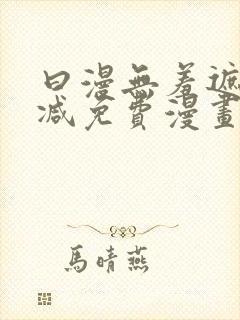 日漫無羞遮
减免費漫畫
馬晴燕